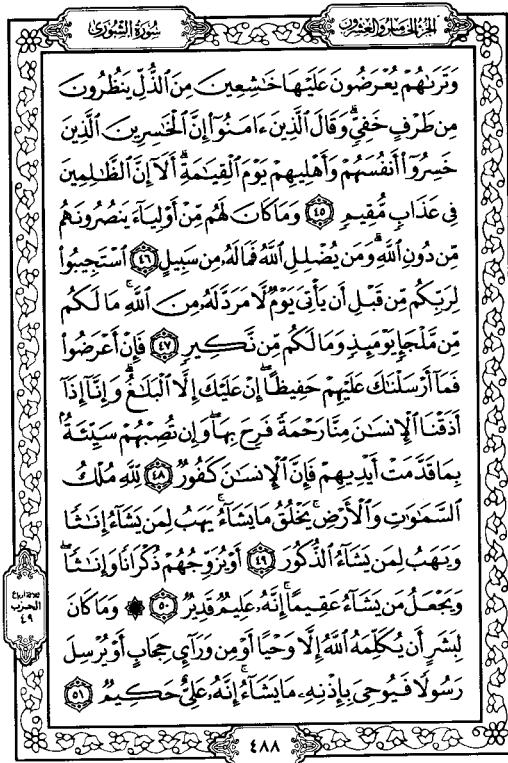 الجزء الخامس والعشرون
سُورَةُ الشُّورَىٰ
وَتَرَىٰهُمْ يُعْرَضُونَ عَلَيْهَا خَٰشِعِينَ مِنَ ٱلذُّلِّ يَنظُرُونَ
مِن طَرْفٍ خَفِيٍّۗ وَقَالَ ٱلَّذِينَ ءَامَنُوٓا۟ إِنَّ ٱلْخَٰسِرِينَ ٱلَّذِينَ
خَسِرُوٓا۟ أَنفُسَهُمْ وَأَهْلِيهِمْ يَوْمَ ٱلْقِيَٰمَةِۗ أَلَآ إِنَّ ٱلظَّٰلِمِينَ
فِى عَذَابٍ مُّقِيمٍ ٤٥ وَمَا كَانَ لَهُم مِّنْ أَوْلِيَآءَ يَنصُرُونَهُم
مِّن دُونِ ٱللَّهِۗ وَمَن يُضْلِلِ ٱللَّهُ فَمَا لَهُۥ مِن سَبِيلٍ ٤٦ ٱسْتَجِيبُوا۟
لِرَبِّكُم مِّن قَبْلِ أَن يَأْتِىَ يَوْمٌ لَّا مَرَدَّ لَهُۥ مِنَ ٱللَّهِۚ مَا لَكُم
مِّن مَّلْجَإٍ يَوْمَئِذٍ وَمَا لَكُم مِّن نَّكِيرٍ ٤٧ فَإِنْ أَعْرَضُوا۟
فَمَآ أَرْسَلْنَٰكَ عَلَيْهِمْ حَفِيظًاۖ إِنْ عَلَيْكَ إِلَّا ٱلْبَلَٰغُۗ وَإِنَّآ إِذَآ
أَذَقْنَا ٱلْإِنسَٰنَ مِنَّا رَحْمَةً فَرِحَ بِهَاۖ وَإِن تُصِبْهُمْ سَيِّئَةٌۢ
بِمَا قَدَّمَتْ أَيْدِيهِمْ فَإِنَّ ٱلْإِنسَٰنَ كَفُورٌ ٤٨ لِّلَّهِ مُلْكُ
ٱلسَّمَٰوَٰتِ وَٱلْأَرْضِۚ يَخْلُقُ مَا يَشَآءُۚ يَهَبُ لِمَن يَشَآءُ إِنَٰثًا
وَيَهَبُ لِمَن يَشَآءُ ٱلذُّكُورَ ٤٩ أَوْ يُزَوِّجُهُمْ ذُكْرَانًا وَإِنَٰثًاۖ
وَيَجْعَلُ مَن يَشَآءُ عَقِيمًاۚ إِنَّهُۥ عَلِيمٌ قَدِيرٌ ٥٠ ۞ وَمَا كَانَ
لِبَشَرٍ أَن يُكَلِّمَهُ ٱللَّهُ إِلَّا وَحْيًا أَوْ مِن وَرَآئِ حِجَابٍ أَوْ يُرْسِلَ
رَسُولًا فَيُوحِىَ بِإِذْنِهِۦ مَا يَشَآءُۚ إِنَّهُۥ عَلِىٌّ حَكِيمٌ ٥١
ثلاثة أرباع
الحزب
٤٩
٤٨٨